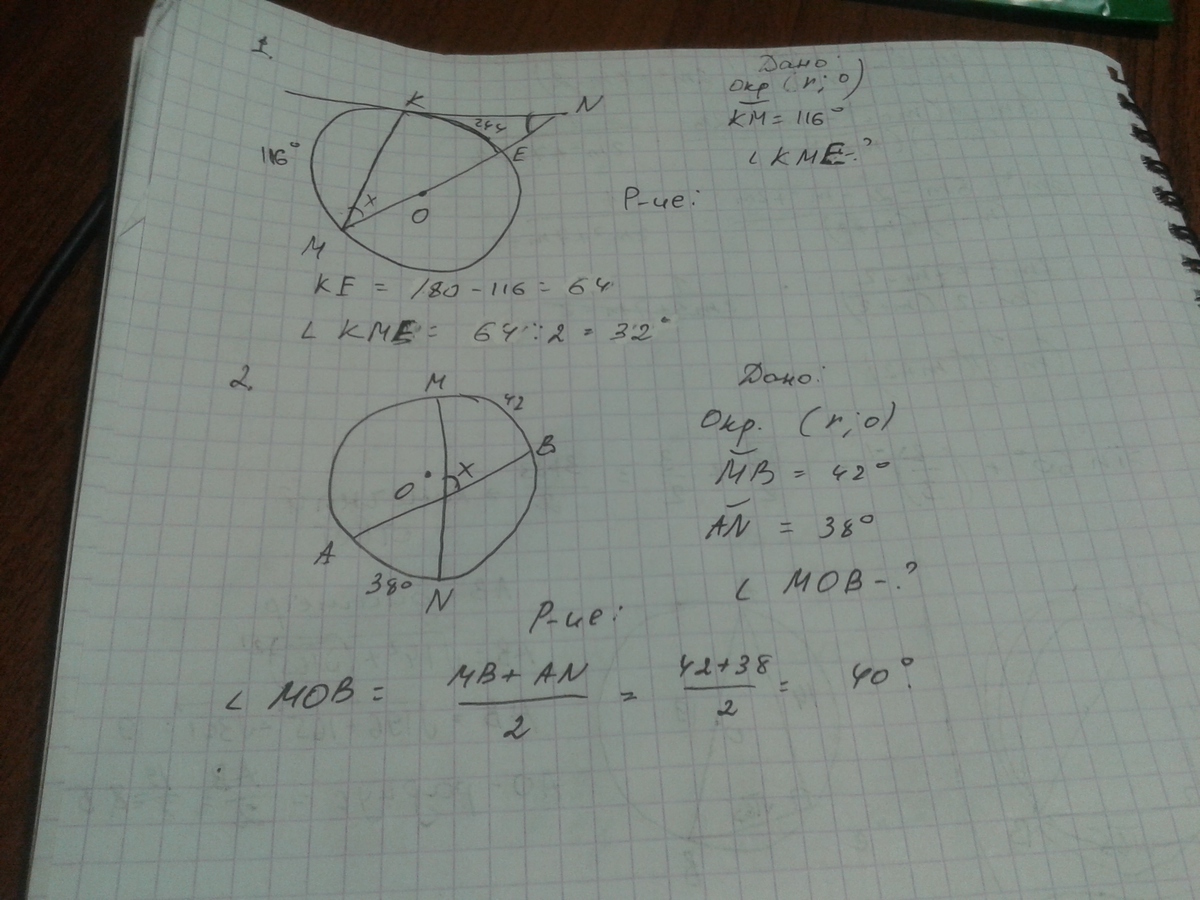 1.
Дано:
Окр (r; o)
KM = 116°
∠ KME - ?
K
N
244
E
116°
x
O
M
Р-ие:
KE = 180 - 116 = 64
∠ KME = 64 : 2 = 32°
2.
Дано:
Окр. (r; o)
MB = 42°
AN = 38°
∠ MOB - ?
M
42
B
x
O
A
38°
N
Р-ие:
∠ MOB = MB + AN / 2 = 42+38 / 2 = 40°.